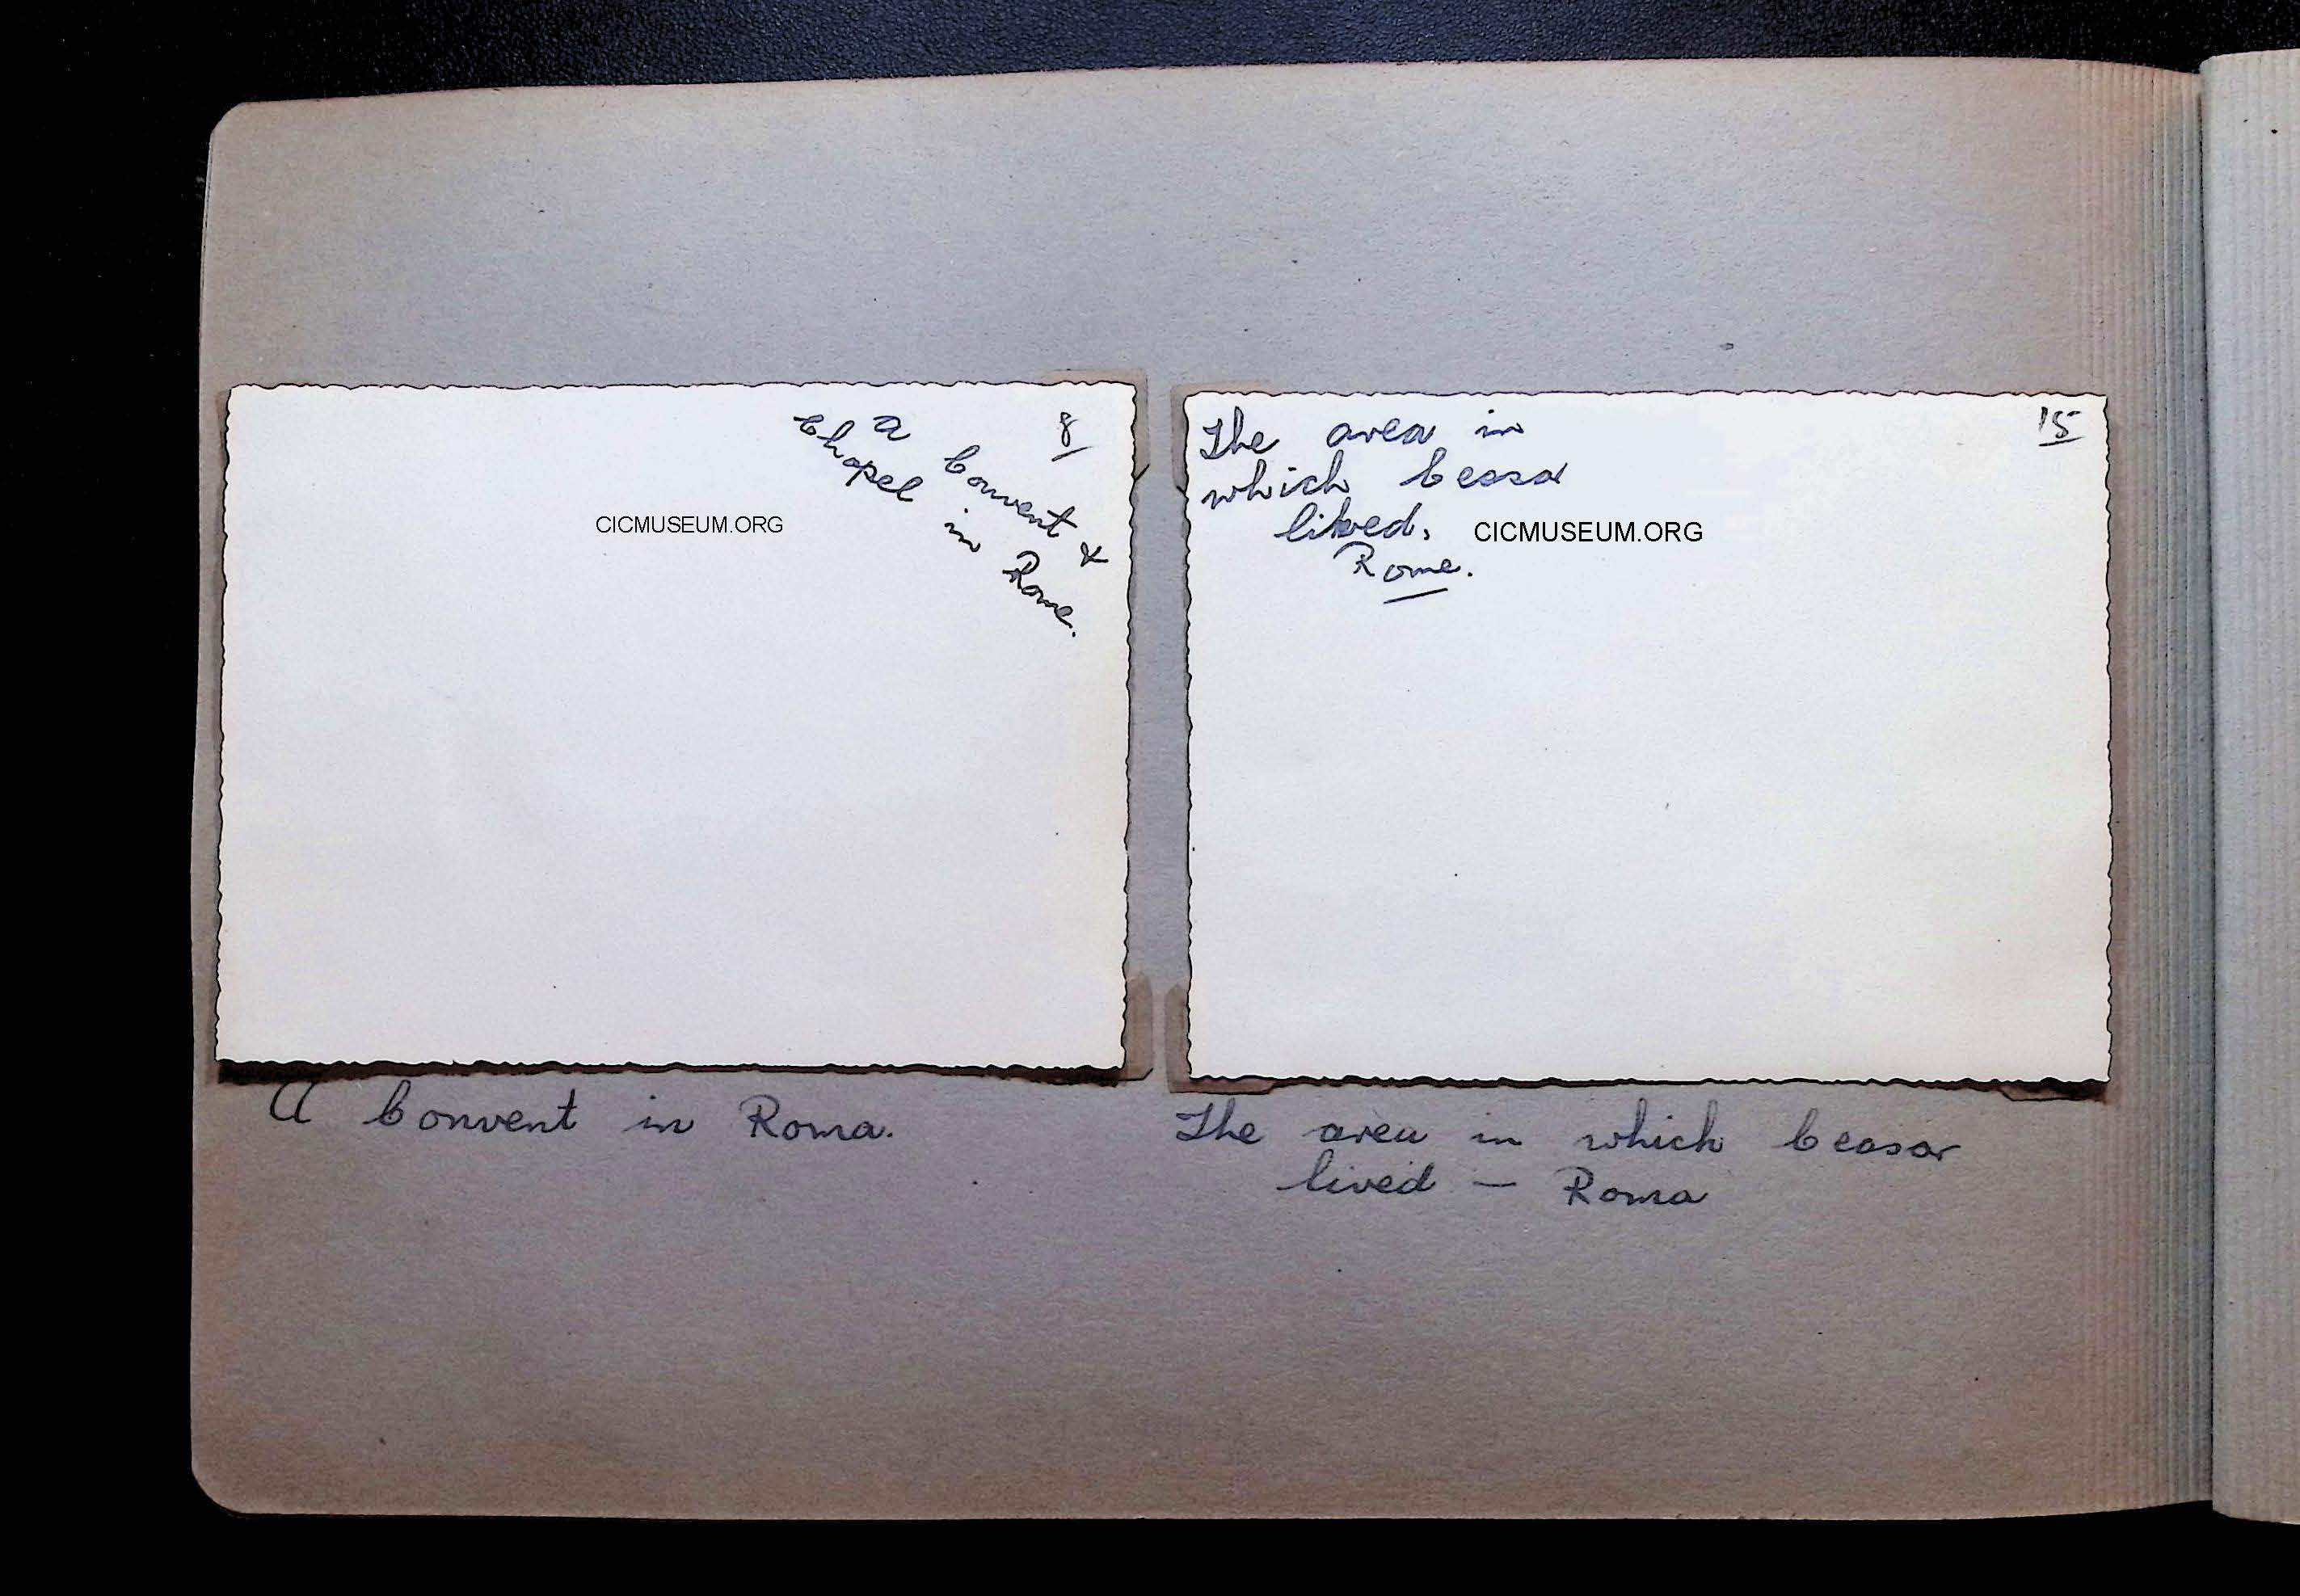 8
A Convent &
Chapel in Rome.
CICMUSEUM.ORG
15
The area in
which Ceasar
lived.
Rome.
CICMUSEUM.ORG
A Convent in Roma.
The area in which Ceasar
lived — Roma